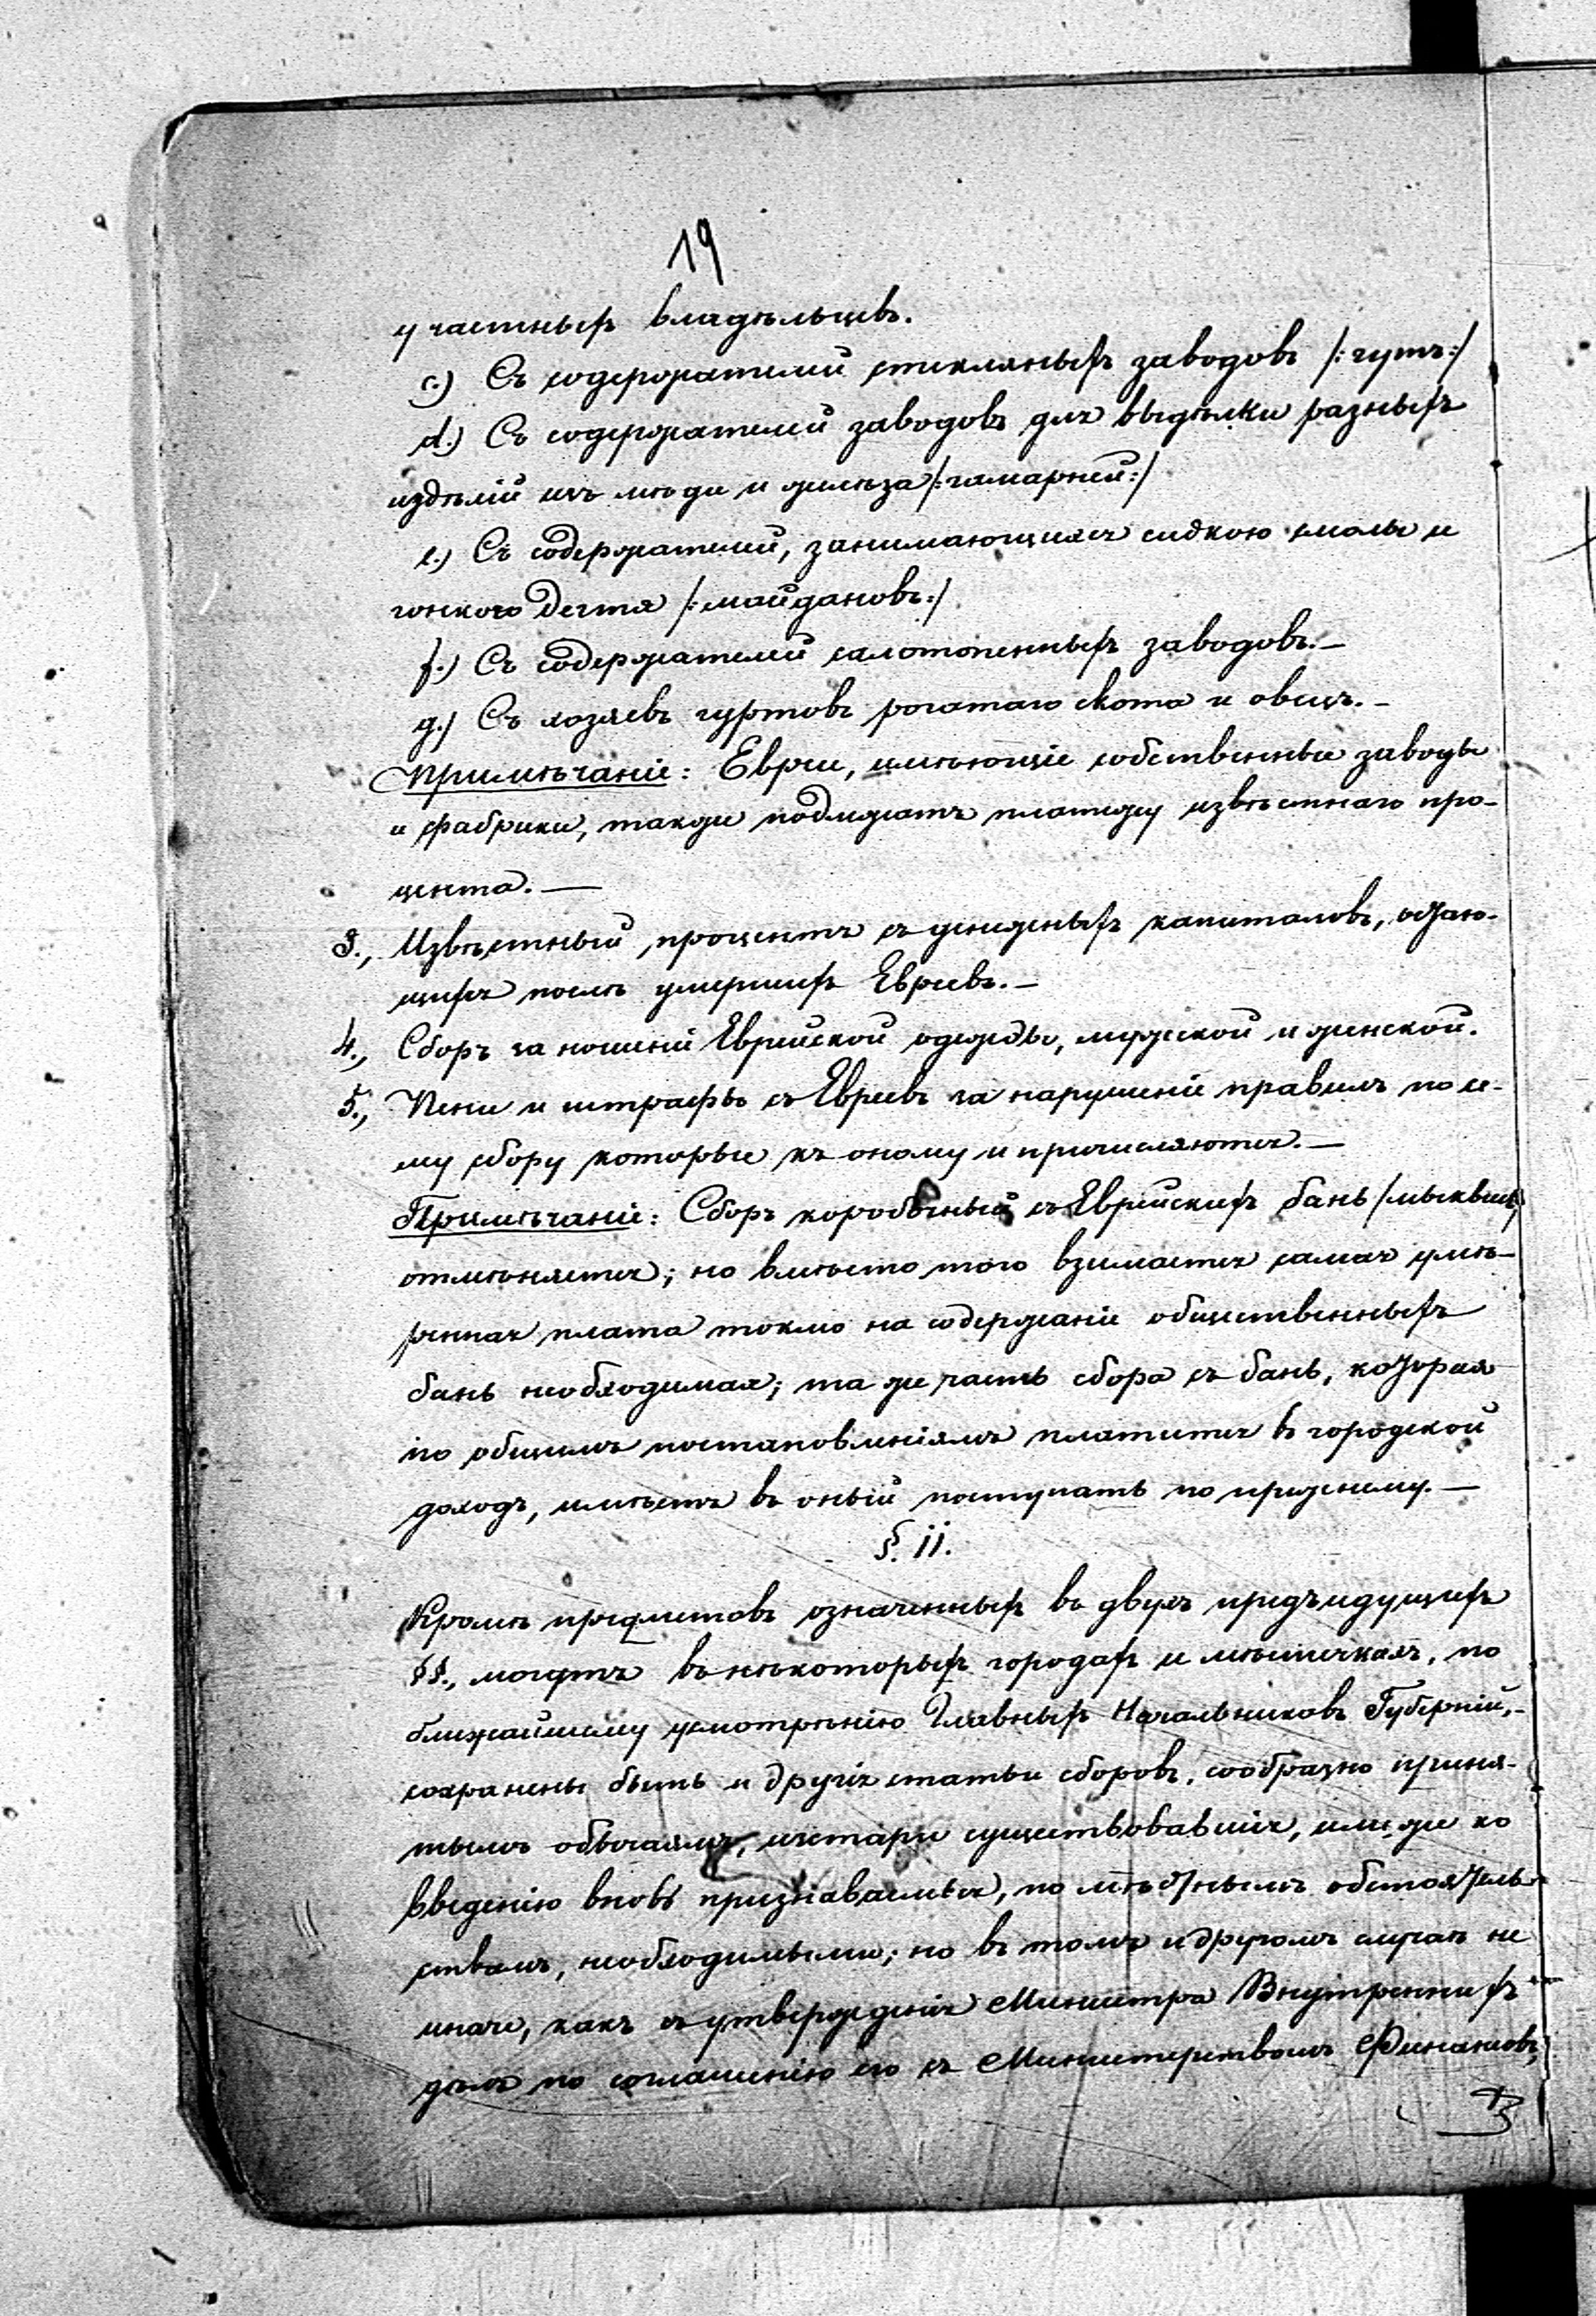 19
у частныхъ владѣльцевъ.
c.) Съ содержателей стекляныхъ заводовъ /:гутъ:/
d.) Съ содержателей заводовъ для выдѣлки разныхъ
издѣлій изъ мѣди и желѣза /:гамарней:/
e.) Съ содержателей, занимающихся сидкою смолы и
гонкого дегтя /:майдановъ:/
f.) Съ содержателей салотопенныхъ заводовъ.—
g.) Съ хозяевъ гуртовъ рогатаго скота и овецъ.—
Примѣчаніе: Евреи, имѣющіе собственные заводы
и фабрики, также подлежатъ платежу извѣстнаго про-
цента.—
3., Извѣстный процентъ съ денежныхъ капиталовъ, остаю-
щихся послѣ умершихъ Евреевъ.—
4., Сборъ за ношеніе Еврейской одежды, мужской и женской.
5., Пени и штрафы съ Евреевъ за нарушеніе правилъ по се-
му сбору которые къ оному и причисляются.—
Примѣчаніе: Сборъ коробочный съ Еврейскихъ бань /мыквъ
отмѣняется; но вмѣсто того взимается самая умѣ-
ренная плата токмо на содержаніе общественныхъ
бань необходимая; та же часть сбора съ бань, которая
по общимъ постановленіямъ платится въ городской
доходъ, имѣетъ въ оный поступать по прежнему.—
§. 11.
Кромѣ предметовъ означенныхъ въ двухъ предъидущихъ
§§., могутъ въ нѣкоторыхъ городахъ и мѣстечкахъ, по
ближайшему усмотрѣнію Главныхъ Начальниковъ Губерній,-
сохранены быть и другія статьи сборовъ, сообразно приня-
тымъ обычаямъ, изстари существовавшія, или же ко
введенію вновь признаваемыя, по мѣстнымъ обстоятель-
ствамъ, необходимыми; но въ томъ и другомъ случаѣ не
иначе, какъ съ утвержденія Министра Внутреннихъ
дѣлъ по соглашенію его съ Министерствомъ Финансовъ,